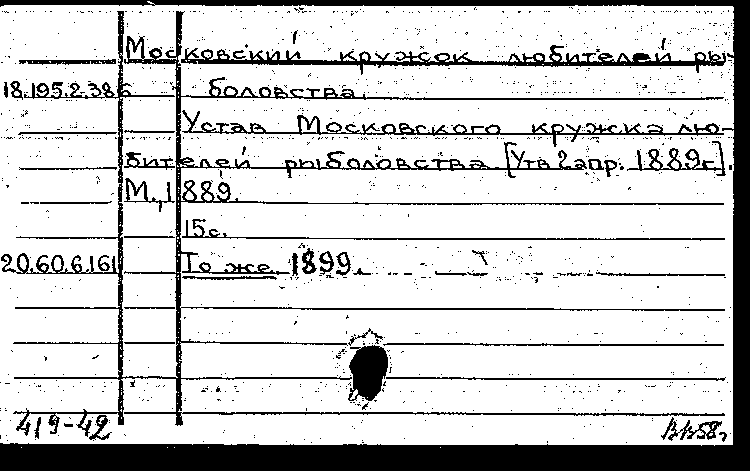 Московский кружок любителей ры-
18.195.2.386 боловства.
Устав Московского кружка лю-
бителей рыболовства [Утв 2 апр. 1889г].
М., 1889.
15с.
20.60.6.161 То же. 1899.
419-42